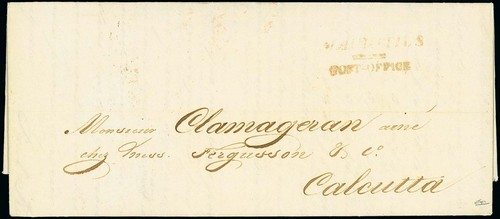 MAURITIUS
POST-OFFICE
Monsieur Clamageran ainé
chez Messrs. Fergusson & Co.
Calcutta